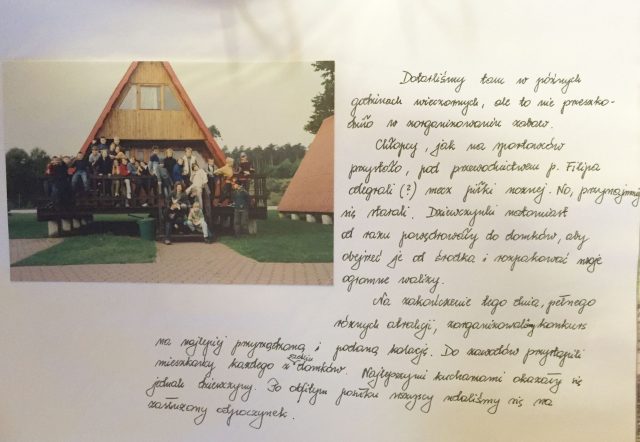 Dotarliśmy tam w późnych
godzinach wieczornych, ale to nie przeszko-
dziło w zorganizowaniu zabaw.
Chłopcy, jak na sportowców
przystało, pod przewodnictwem p. Filipa
odegrali (?) mecz piłki nożnej. No, przynajmniej
się starali. Dziewczynki natomiast
od razu powędrowały do domków, aby
obejrzeć je od środka i rozpakować swoje
ogromne walizy.
Na zakończenie tego dnia, pełnego
różnych atrakcji, zorganizowaliśmy konkurs
na najlepiej przyrządzoną i podaną kolację. Do zawodów przystąpili
mieszkańcy każdego z domków. Najlepszymi kucharkami okazały się
jednak dziewczyny. Po obfitym posiłku wszyscy udaliśmy się na
zasłużony odpoczynek.